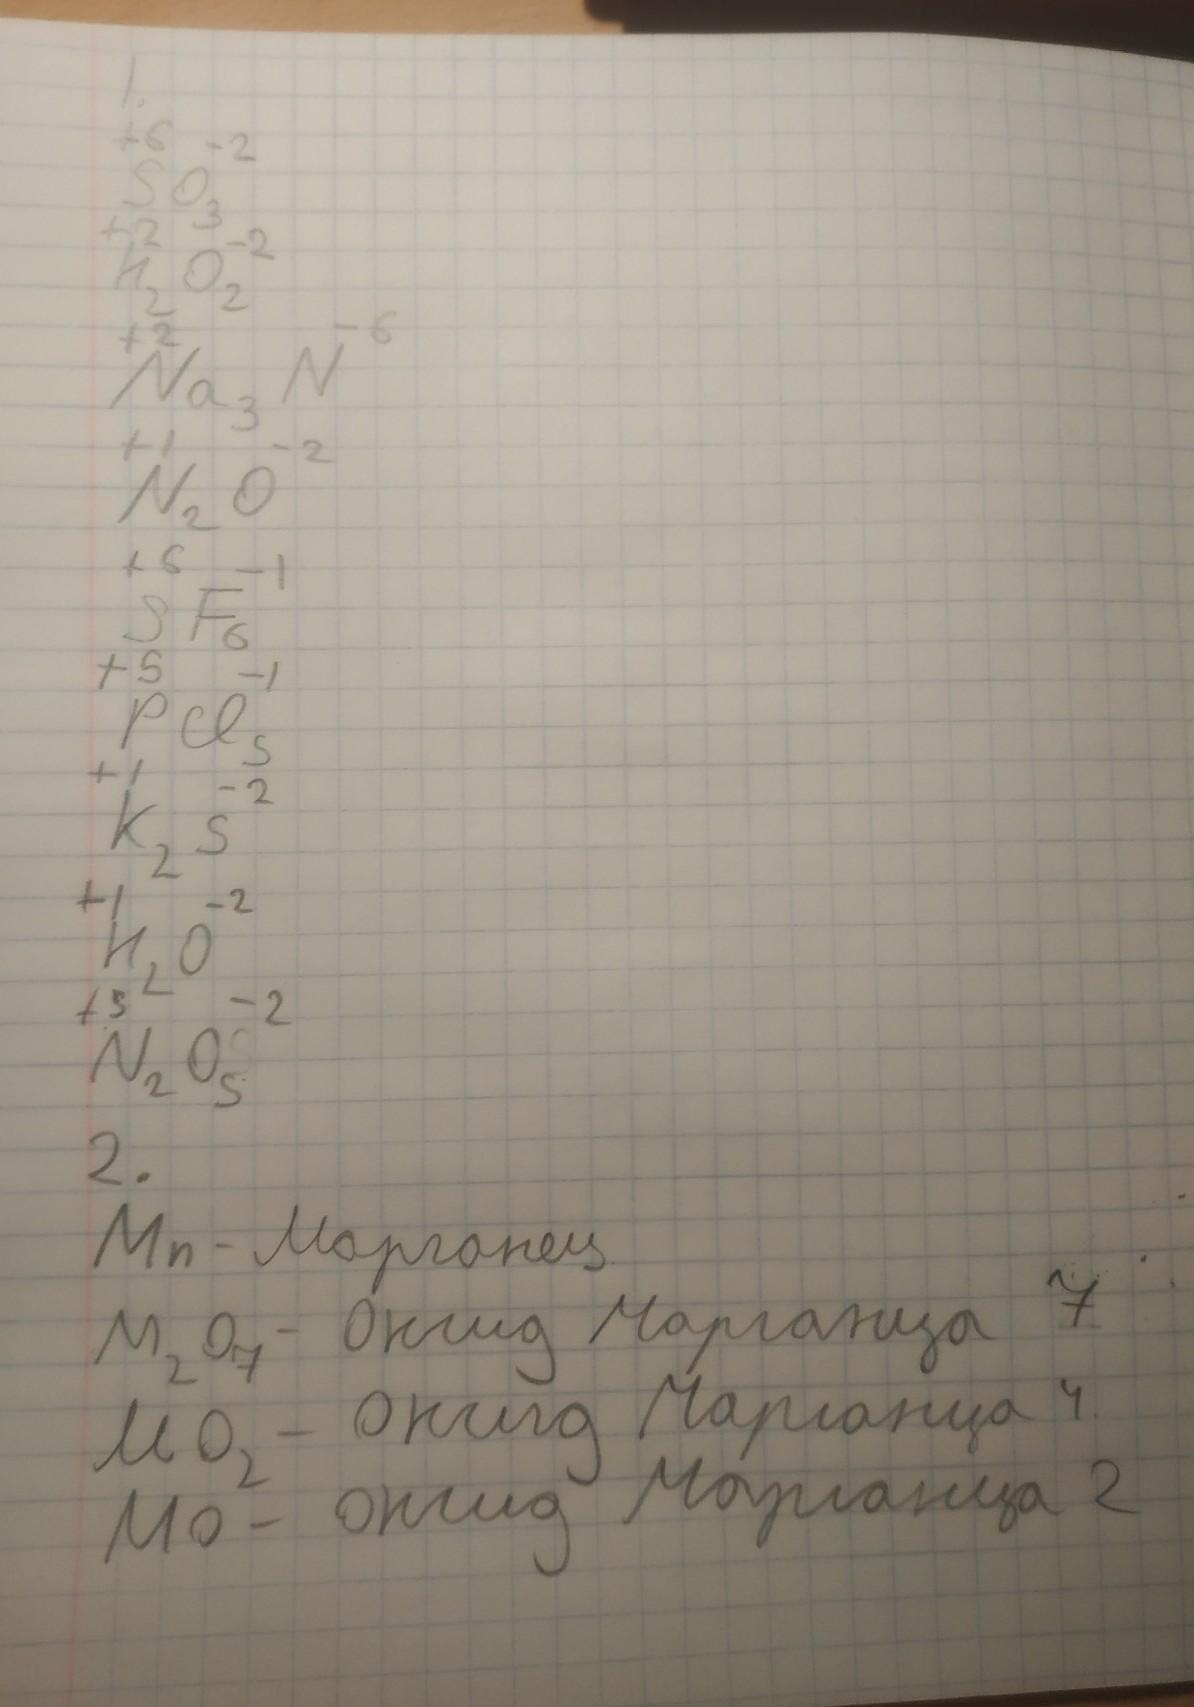 1.
+6 -2
SO3
+2 -2
H2O2
+2 -6
Na3N
+1 -2
N2O
+6 -1
SF6
+5 -1
PCl5
+1 -2
K2S
+1 -2
H2O
+5 -2
N2O5
2.
Mn - Марганец
M2O7 - Оксид Марганца 7
MO2 - Оксид Марганца 4
MO - оксид Марганца 2